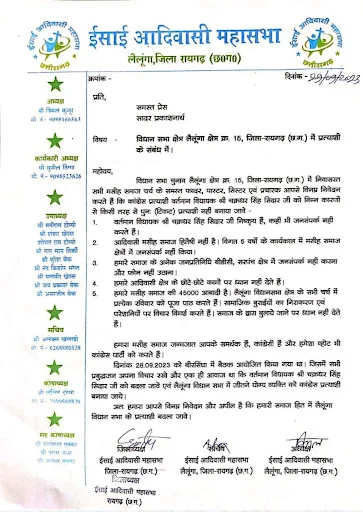 ईसाई आदिवासी महासभा
लैलूंगा, जिला रायगढ़ (छ०ग०)
ईसाई आदिवासी महासभा
छत्तीसगढ़
ईसाई आदिवासी महासभा
छत्तीसगढ़
क्रमांक -
दिनांक -
अध्यक्ष
कार्यकारी अध्यक्ष
उपाध्यक्ष
सचिव
कोषाध्यक्ष
सह कोषाध्यक्ष
प्रति,
समस्त प्रेस
सादर प्रकाशनार्थ
विषय - विधान सभा क्षेत्र लैलूंगा क्षेत्र क्र. 15, जिला-रायगढ़ (छ.ग.) में प्रत्याशी
के संबंध में।
महोदय,
विधान सभा चुनाव लैलूंगा क्षेत्र क्र. 15, जिला-रायगढ़ (छ.ग.) में निवासरत
सभी मसीह समाज चर्च के समस्त फादर, पास्टर, सिस्टर एवं प्रचारक आपसे विनम्र निवेदन
करते हैं कि कांग्रेस प्रत्याशी वर्तमान विधायक श्री चक्रधर सिंह सिदार जी को निम्न कारणों
से किसी तरह से पुनः (टिकट) प्रत्याशी नहीं बनाया जावे -
1. वर्तमान विधायक श्री चक्रधर सिंह सिदार जी निष्क्रय हैं, कहीं भी जनसंपर्क नहीं
करते हैं।
2. आदिवासी मसीह समाज हितैषी नहीं है। विगत 5 वर्षो के कार्यकाल में मसीह समाज
क्षेत्रों में जनसंपर्क नहीं किया।
3. हमारे समाज के अनेक जनप्रतिनिधि बीडीसी, सरपंच क्षेत्र में जनसंपर्क नहीं करना
और फोन नहीं उठाना।
4. हमारे आदिवासी क्षेत्र के छोटे-छोटे कामों पर ध्यान नहीं देते हैं।
5. हमारे मसीह समाज की 45000 आबादी है। लैलूंगा विधानसभा क्षेत्र के सभी चर्च में
प्रत्येक रविवार को पूजा पाठ करते हैं। सामाजिक बुराईयों का निराकरण एवं
परेशानियों पर विचार विमर्श करते हैं। समाज के द्वारा बुलाये जाने पर ध्यान नहीं
देते हैं।
हमारा मसीह समाज जन्मजात आपके समर्थक हैं, कांग्रेसी हैं और हमेशा व्होट भी
कांग्रेस पार्टी को करते हैं।
दिनांक 28.09.2023 को बीरसिंघा में बैठक आयोजित किया गया था। जिसमें सभी
प्रबुद्धजन अपना विचार रखे और एक ही आवाज था कि वर्तमान विधायक श्री चक्रधर सिंह
सिदार जी को बदला जावे एवं लैलूंगा विधान सभा में जीतने योग्य व्यक्ति को कांग्रेस प्रत्याशी
बनाया जावे।
अतः हमारा आपसे विनम्र निवेदन और अपील है कि हमारी समाज हित में लैलूंगा
विधान सभा के प्रत्याशी बदला जावे।
जिलाध्यक्ष
ईसाई आदिवासी महासभा
जिला-रायगढ़ (छ.ग.)
जिलाध्यक्ष
ईसाई आदिवासी महासभा
रायगढ़ (छ.ग.)
ईसाई आदिवासी महासभा
लैलूंगा, जिला-रायगढ़ (छ.ग.)
अध्यक्ष
ईसाई आदिवासी महासभा
लैलूंगा, जिला-रायगढ़ (छ.ग.)